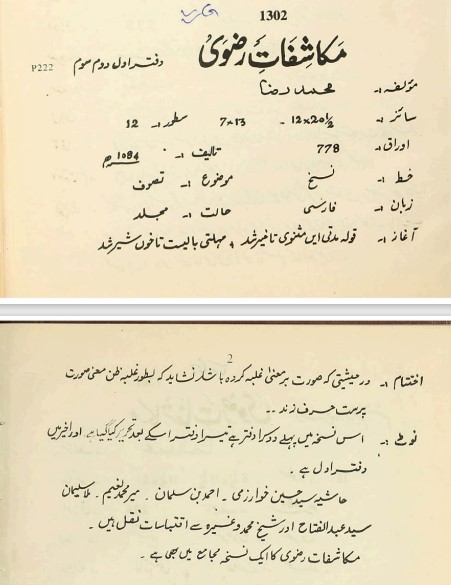 1302
مکاشفاتِ رضوی دفتر اول دوم سوم P222
مؤلف :- محمد رضا
سائز :- 12x20½ - 7x13 سطور :- 12
اوراق :- 778 تالیف :- 1084ھ
خط :- نسخ موضوع :- تصوف
زبان :- فارسی حالت :- مجلد
آغاز :- قولہ مدتی ایں مثنوی تاخیر شد ، مہلتی بایست تا خوں شیر شد
2
اختتام :- در حیثیتی کہ صورت بر معنی غلبہ کردہ باشد نشاید کہ بطور غلبہ ظن معنی صورت
پرست حرف زند --
نوٹ :- اس نسخہ میں پہلے دوسرا دفتر ہے تیسرا دفتر اسکے بعد تحریر کیا گیا ہے اور اخیر میں
دفتر اول ہے ۔
حاشیہ سید حسین خوارزمی ۔ احمد بن سلمان ۔ میر محمد نعیم ۔ ملا سلیمان
سید عبد الفتاح اور شیخ محمد وغیرہ سے اقتباسات نقل ہیں ۔
مکاشفات رضوی کا ایک نسخہ مجامع میں بھی ہے ۔